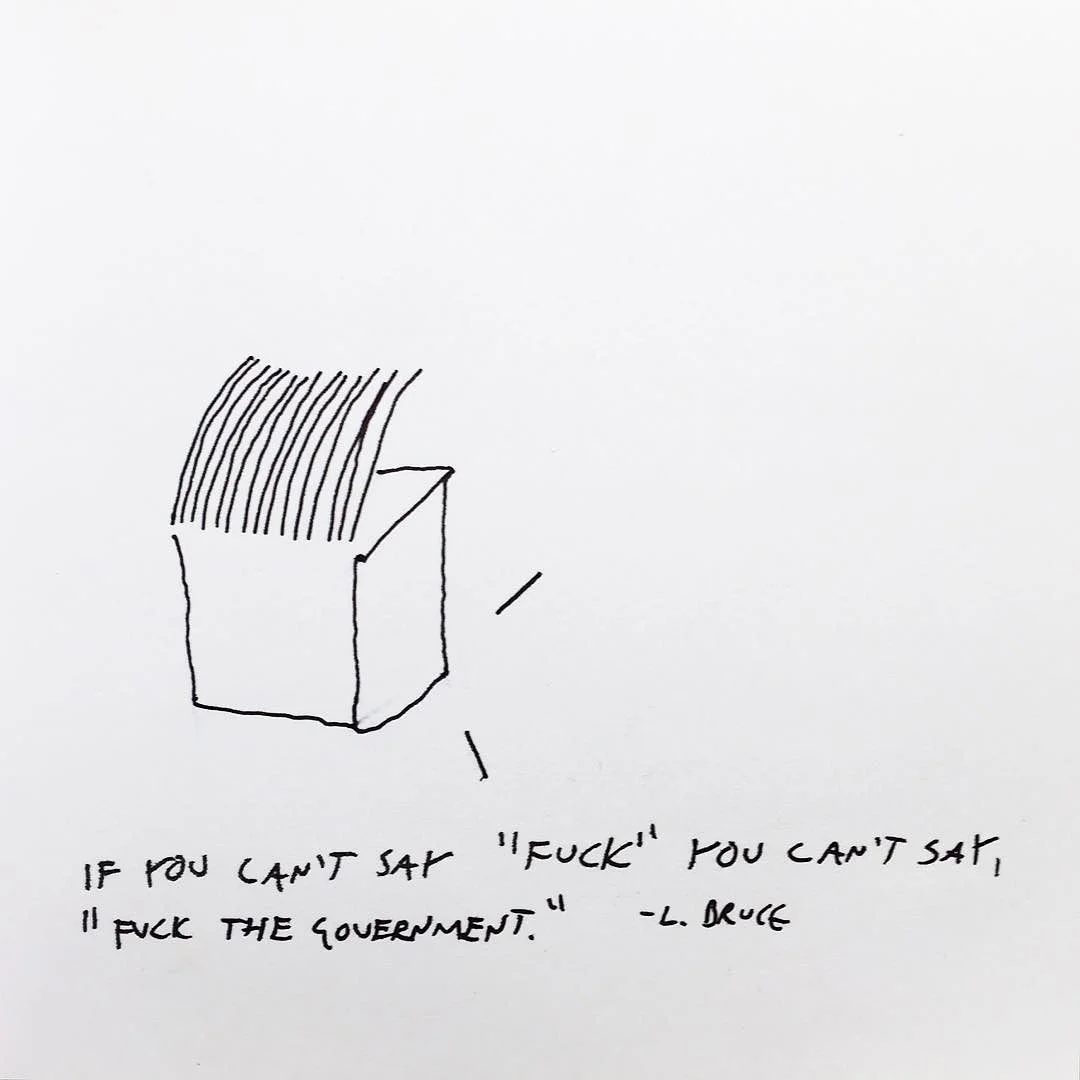 IF YOU CAN'T SAY "FUCK" YOU CAN'T SAY,
"FUCK THE GOVERNMENT." -L. BRUCE